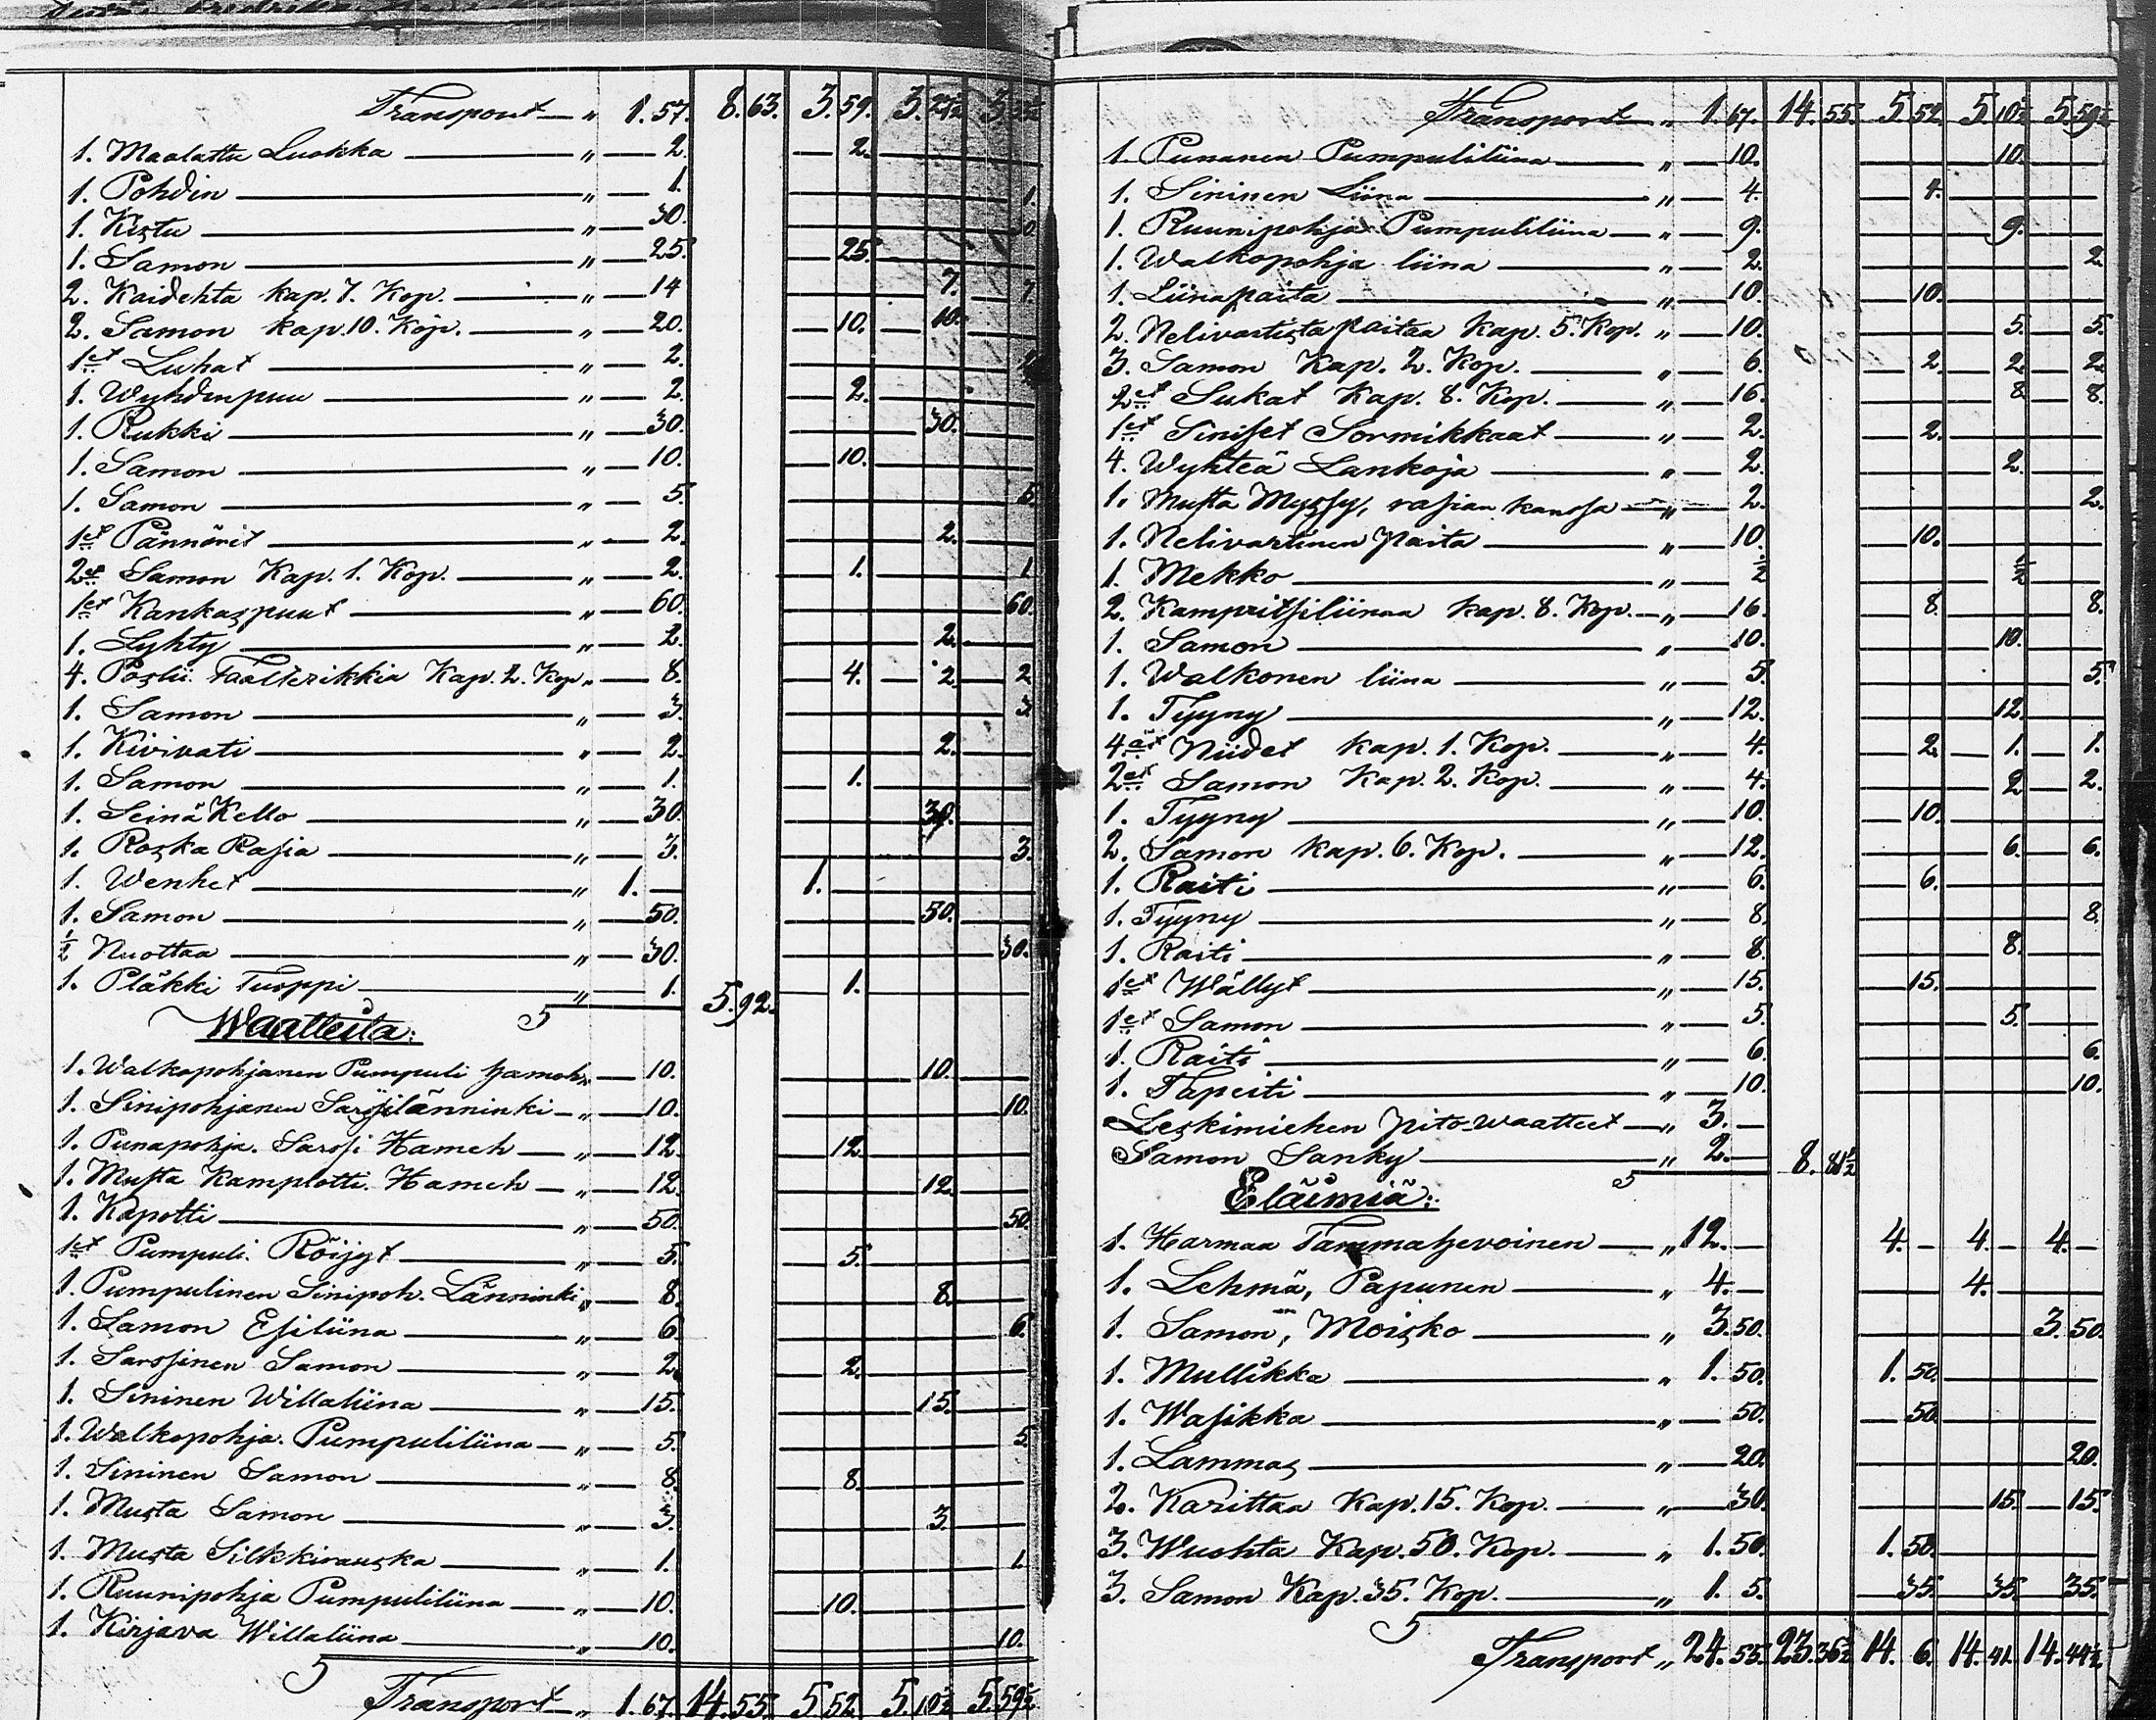 Transport „ 1.57. 8.63. 3.59. 3.
1. Maalattu Luokka „ 2. 2.
1. Pohdin „ 1. 1.
1. Kistu „ 30. 30.
1. Samon „ 25. 25.
2. Kaidehta kap. 7. Kop. „ 14 7. 7.
2. Samon kap. 10. Kop. „ 20. 10. 10.
1et Luhat „ 2.
1. Wyhdinpuu „ 2. 2.
1. Rukki „ 30. 30.
1. Samon „ 10. 10.
1. Samon „ 5. 5.
1et Pännärit „ 2. 2.
2et Samon Kap. 1. Kop. „ 2. 1. 1
1et Kankaspuut „ 60. 60.
1. Lyhty „ 2. 2.
4. Poslii Faatterikkia Kap. 2. Kop „ 8. 4. 2. 2
1. Samon „ 3. 3.
1. Kivivati „ 2. 2.
1. Samon „ 1. 1.
1. SeinäKello „ 30. 30.
1. Roska Rasia „ 3. 3.
1. Wenhet „ 1. — 1.
1. Samon „ 50. 50.
½ Nuottaa „ 30. 30.
1. Pläkki Tuoppi „ 1. 5.92. 1.
Waatteita:
1. Walkopohjanen Pumpuli hameh „ 10. 10.
1. Sinipohjanen Sarssilänninki „ 10. 10.
1. Punapohja. Sarssi Hameh „ 12 12
1. Musta Kamplotti Hameh „ 12. 12.
1. Kapotti „ 50. 50.
1et Pumpuli. Röijyt „ 5. 5.
1. Pumpulinen Sinipoh. Länninki „ 8. 8.
1. Samon Esiliina „ 6. 6.
1. Sarssinen Samon „ 2. 2.
1. Sininen Willaliina „ 15. 15.
1. Walkopohja. Pumpuliliina „ 5. 5
1. Sininen Samon „ 8. 8.
1. Musta Samon „ 3. 3.
1. Musta Silkkirauska „ 1. 1.
1. Ruunipohja Pumpuliliina „ 10. 10.
1. Kirjava Willaliina „ 10. 10.
Transport „ 1.67. 14.55. 5.52 5.10½ 5.59½
Transport „ 1.67. 14.55. 5.52. 5.10½ 5.59½
1. Punanen Pumpuliliina „ 10. 10.
1. Sininen Liina „ 4. 4.
1. Ruunipohja Pumpuliliina „ 9. 9.
1. Walkopohja liina „ 2. 2.
1. Liinapaita „ 10. 10.
2. Nelivartista paitaa Kap. 5. Kop. „ 10. 5. 5.
3. Samon Kap. 2. Kop. „ 6. 2. 2. 2.
2et Sukat Kap. 8. Kop. „ 16. 8. 8.
1et Siniset Sormikkaat „ 2. 2.
4. Wyhteä Lankoja „ 2. 2.
1. Musta Myssy, rasian kanssa „ 2. 2.
1. Nelivartinen Paita „ 10. 10.
1. Mekko „ ½ ½
2. Kampritsiliinaa kap. 8. Kop. „ 16. 8. 8.
1. Samon „ 10. 10.
1. Walkonen liina „ 5. 5.
1. Tyyny „ 12. 12.
4et Niidet kap. 1. Kop. „ 4. 2. 1. 1.
2et Samon Kap. 2. Kop. „ 4. 2 2.
1. Tyyny „ 10. 10.
2. Samon kap. 6. Kop. „ 12. 6. 6.
1. Raiti „ 6. 6.
1. Tyyny „ 8. 8.
1. Raiti „ 8. 8.
1et Wällyt „ 15. 15.
1et Samon „ 5. 5.
1. Raiti „ 6. 6.
1. Tapeiti „ 10. 10.
Leskimiehen pito-waatteet „ 3. —
Samon Sänky „ 2. — 8. 81½
Eläimiä:
1. Harmaa Tammahevoinen „ 12. — 4. — 4. — 4. —
1. Lehmä, Papunen „ 4. — 4.
1. Samon, Moisko „ 3.50. 3.50.
1. Mullikka „ 1.50. 1.50.
1. Wasikka „ 50. 50.
1. Lammas „ 20. 20.
2. Karittaa Kap. 15. Kop. „ 30. 15. 15.
3. Wuohta Kap. 50. Kop. „ 1.50. 1.50.
3. Samon Kap. 35. Kop. „ 1. 5. 35. 35. 35.
Transport „ 24.55. 23.36½ 14. 6. 14.41. 14.44½